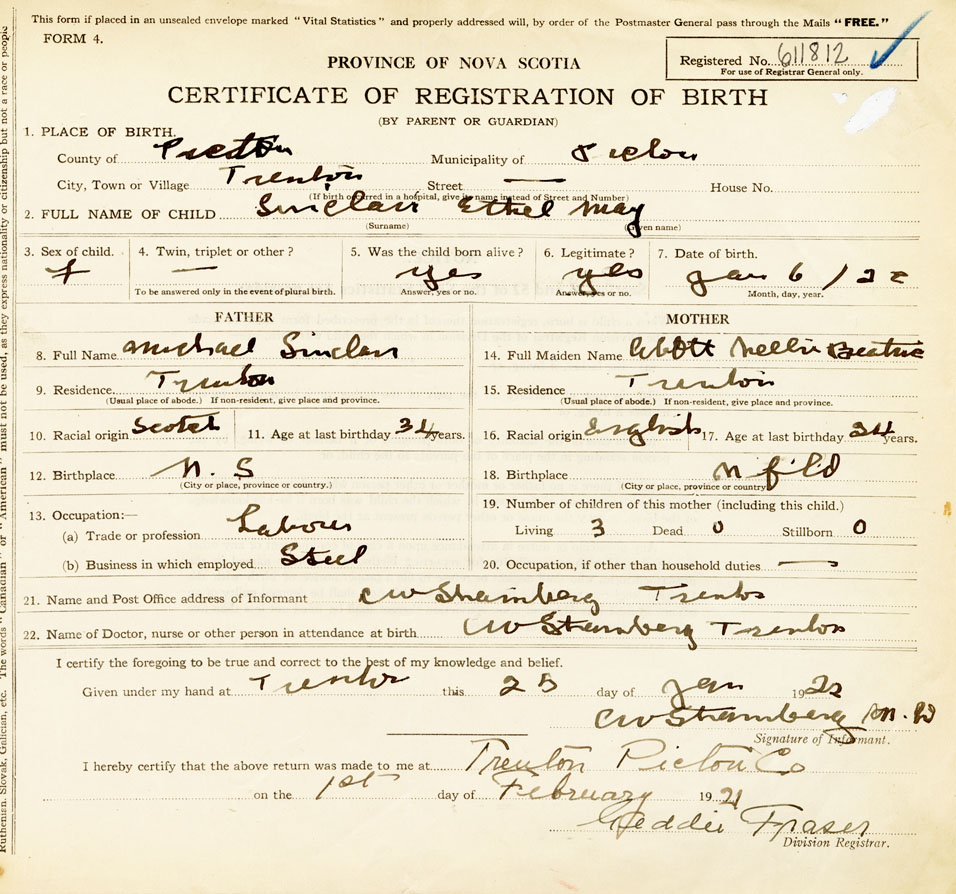 This form if placed in an unsealed envelope marked "Vital Statistics" and properly addressed will, by order of the Postmaster General pass through the Mails "FREE."
FORM 4.
Registered No. 611812
For use of Registrar General only.
PROVINCE OF NOVA SCOTIA
CERTIFICATE OF REGISTRATION OF BIRTH
(BY PARENT OR GUARDIAN)
1. PLACE OF BIRTH.
County of Pictou Municipality of Pictou
City, Town or Village Trenton Street — House No.
(If birth occurred in a hospital, give its name instead of Street and Number)
2. FULL NAME OF CHILD Sinclair Ethel May
(Surname) (Given name)
3. Sex of child. 4. Twin, triplet or other? 5. Was the child born alive? 6. Legitimate? 7. Date of birth.
f — yes yes Jan 6 / 22
To be answered only in the event of plural birth. Answer, yes or no. Answer, yes or no. Month, day, year.
FATHER MOTHER
8. Full Name Michael Sinclair 14. Full Maiden Name Abbott Nellie Beatrice
9. Residence Trenton 15. Residence Trenton
(Usual place of abode.) If non-resident, give place and province. (Usual place of abode.) If non-resident, give place and province.
10. Racial origin Scotch 11. Age at last birthday 34 years. 16. Racial origin English 17. Age at last birthday 34 years.
12. Birthplace N. S 18. Birthplace N fld
(City or place, province or country.) (City or place, province or country)
13. Occupation:— 19. Number of children of this mother (including this child.)
(a) Trade or profession Laborer Living 3 Dead 0 Stillborn 0
(b) Business in which employed Steel 20. Occupation, if other than household duties —
21. Name and Post Office address of Informant C W Trenton
22. Name of Doctor, nurse or other person in attendance at birth C W Trenton
I certify the foregoing to be true and correct to the best of my knowledge and belief.
Given under my hand at Trenton this 25 day of Jan 1922
C W M. D
Signature of Informant.
I hereby certify that the above return was made to me at Trenton Pictou Co
on the 1st day of February 1921
Geddie Fraser
Division Registrar.
Ruthenian, Slovak, Galician, etc. The words "Canadian" or "American" must not be used, as they express nationality or citizenship but not a race or people